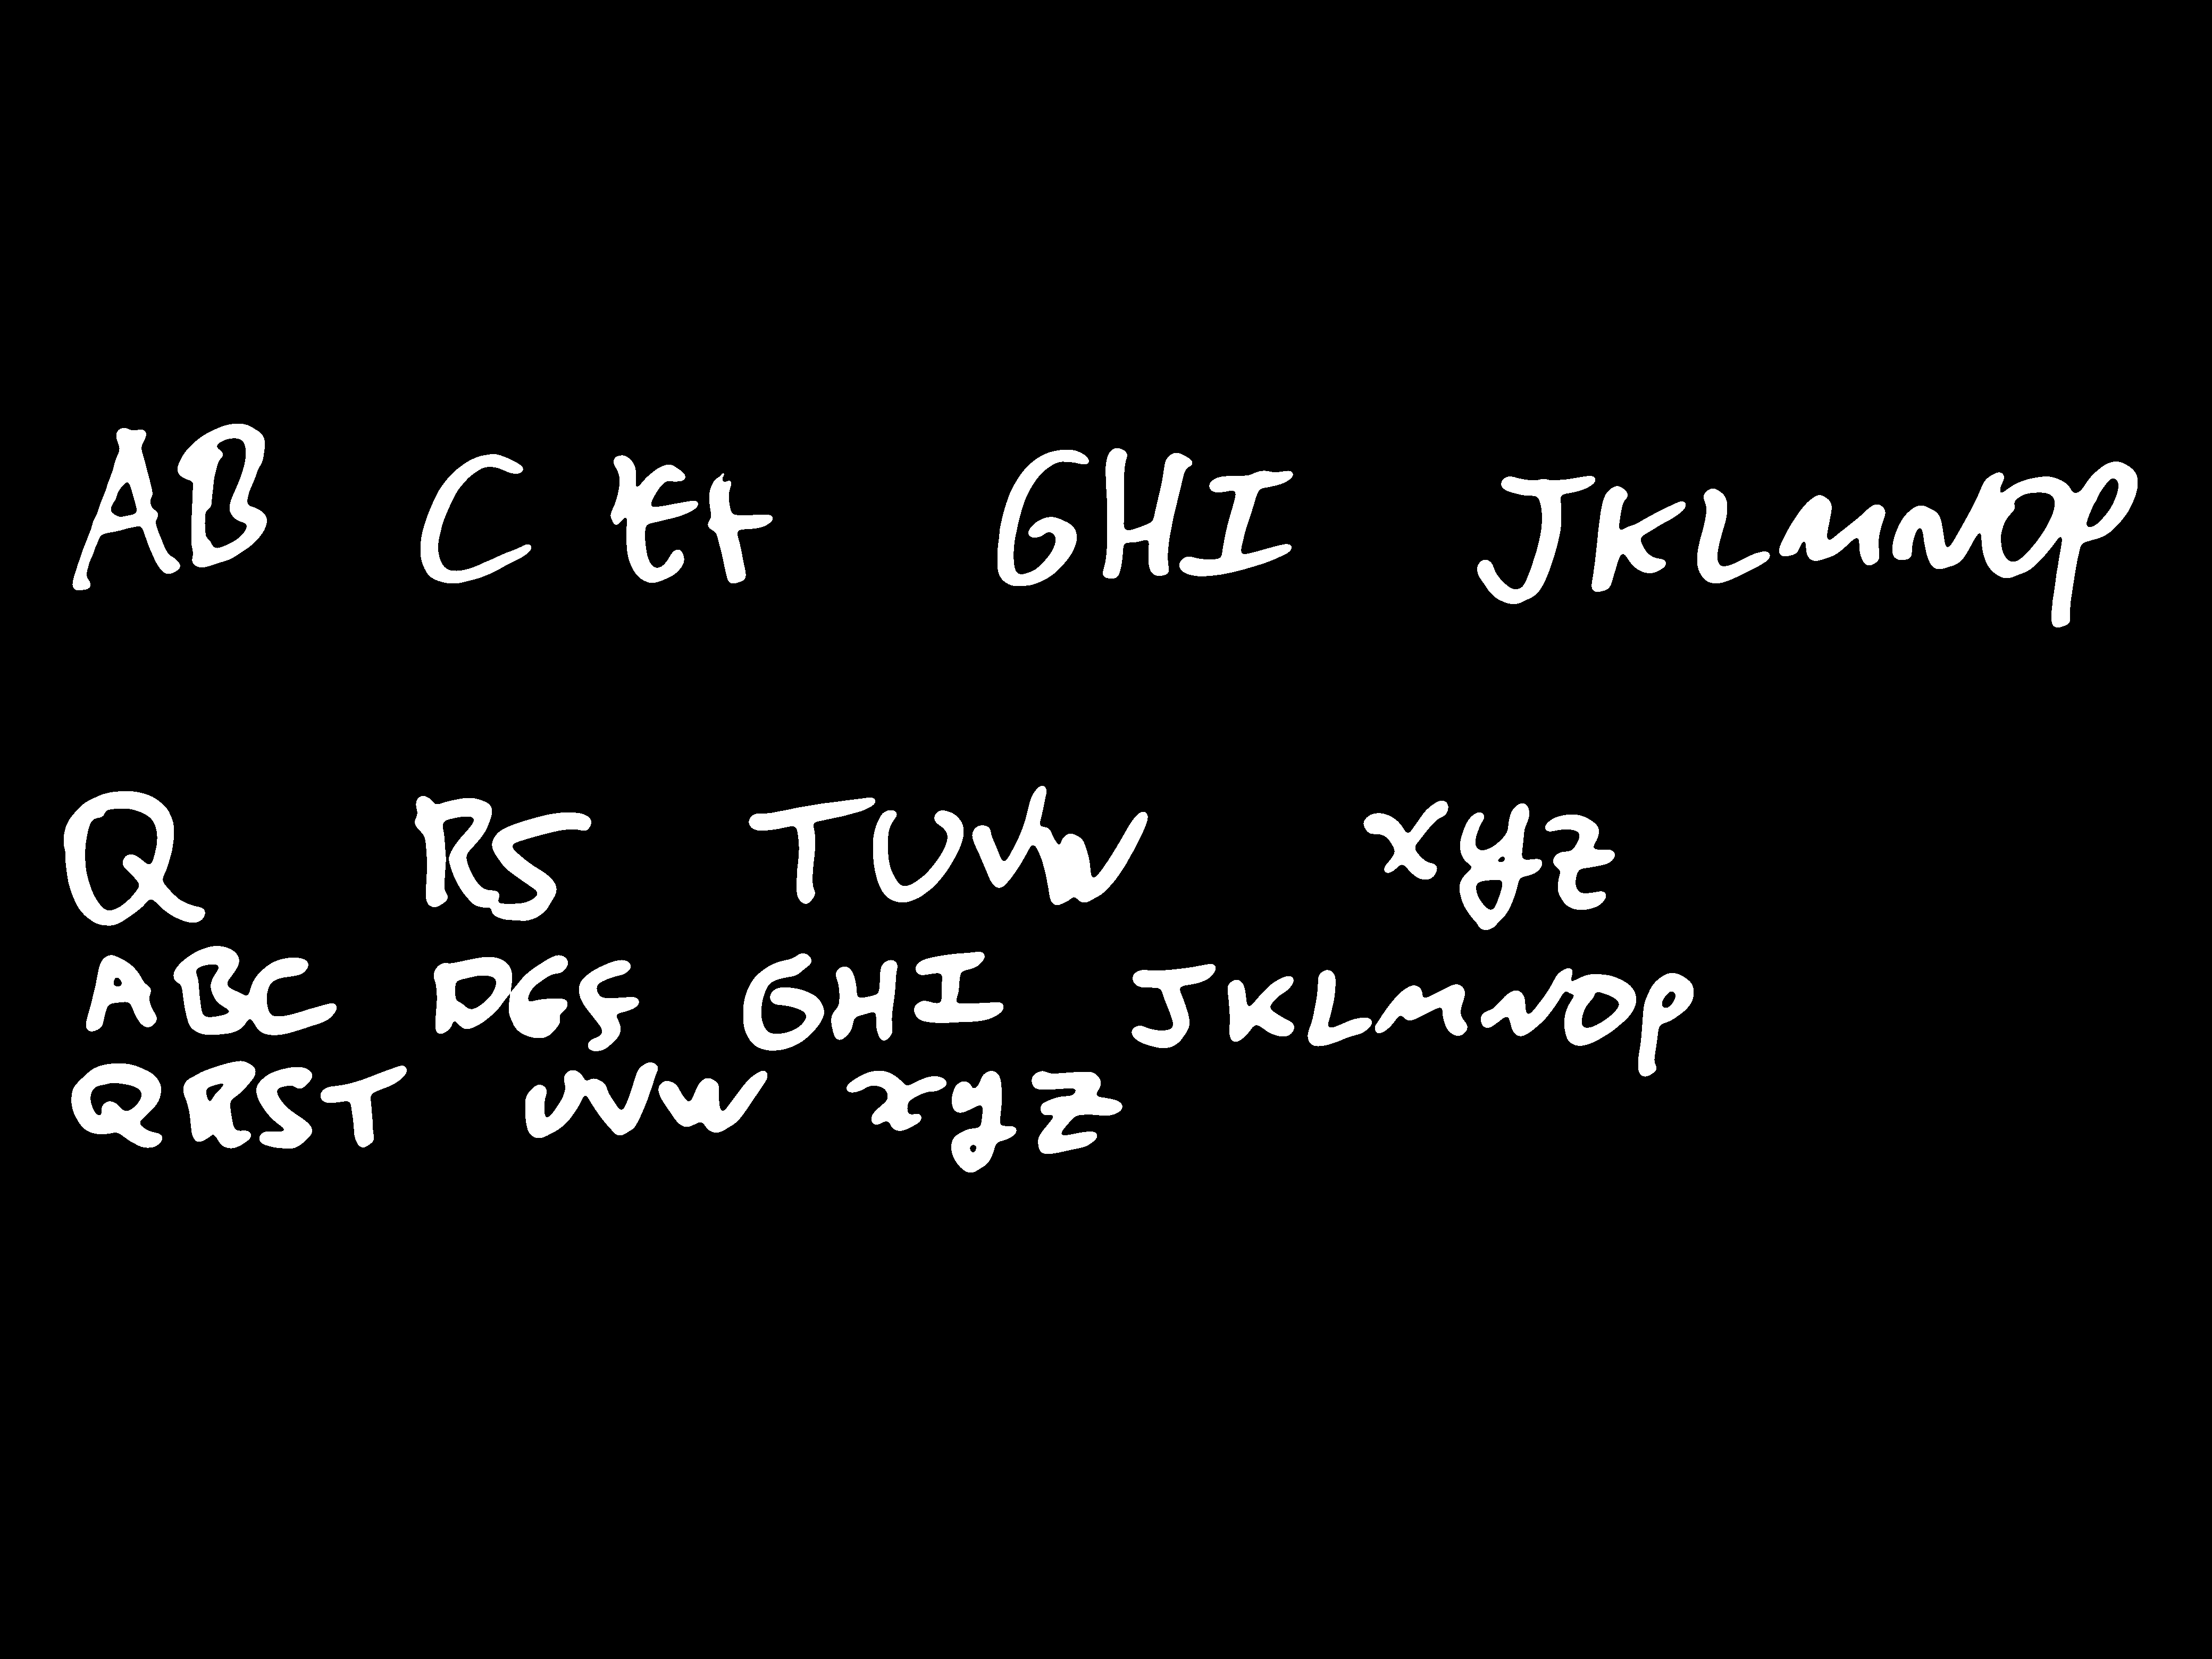 AB C GHI JKLMNOP
Q RS TUVW xyz
ABC DEF GHI JKLMNOP
QRST UVW xyz